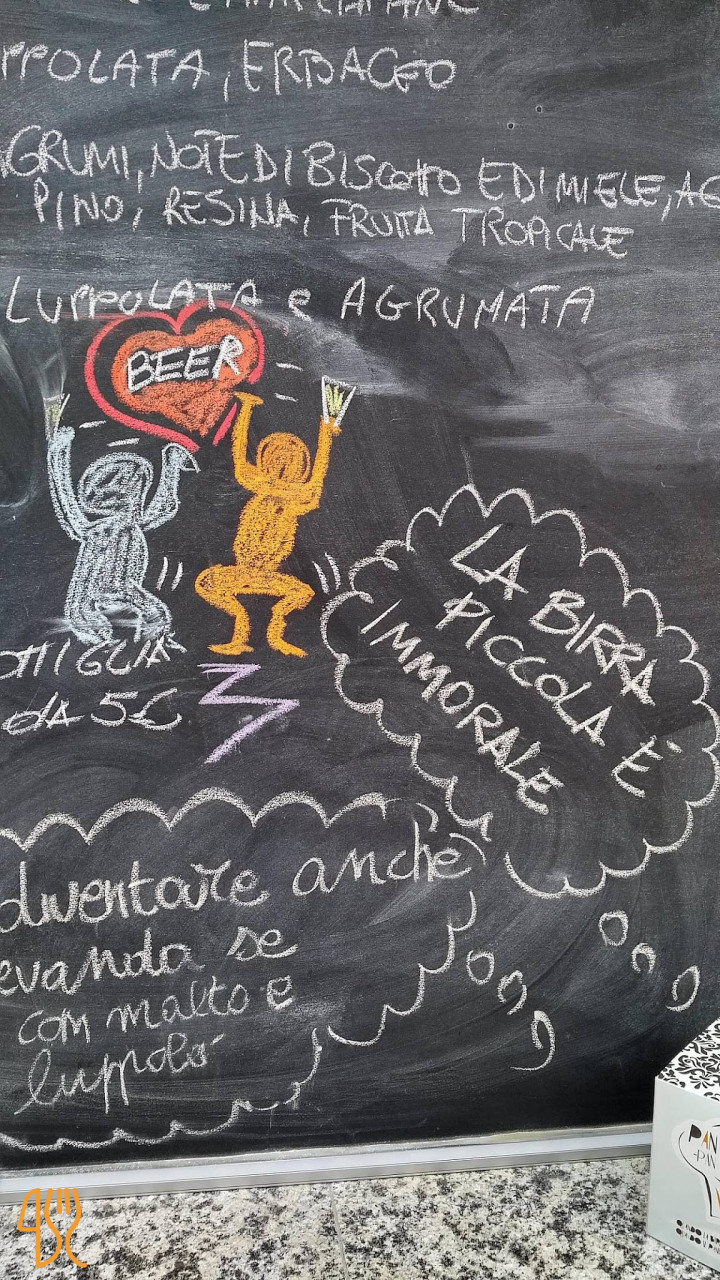 LUPPOLATA, ERBACEO
AGRUMI, NOTE DI BISCOTTO E DI MIELE, AG
PINO, RESINA, FRUTTA TROPICALE
LUPPOLATA e AGRUMATA
BEER
LA BIRRA
PICCOLA È
IMMORALE
OTTIGLIA
da 5€
diventare anche
evanda se
con malto e
luppolo
PAN